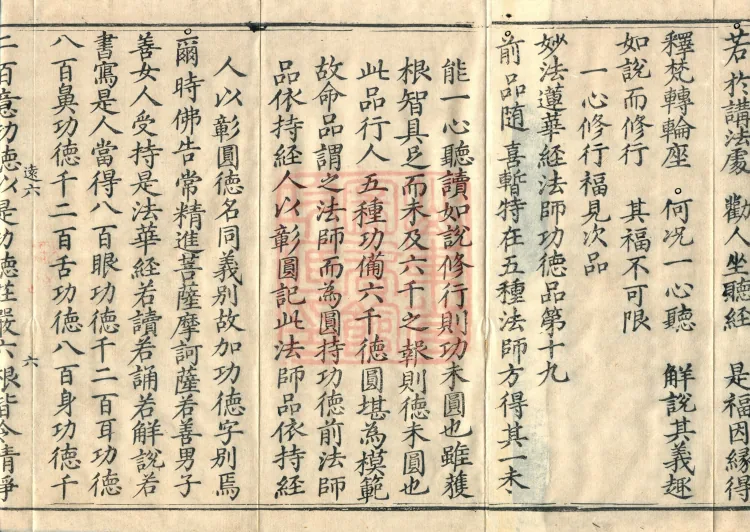 若於講法處 勸人坐聽經 是福因緣得
釋梵轉輪座 何況一心聽 解說其義趣
如說而修行 其福不可限
一心修行福見次品
妙法蓮華經法師功德品第十九
前品随喜暫特在五種法師方得其一未
能一心聽讀如說修行則功未圓也雖獲
根智具足而未及六千之報則德未圓也
此品行人五種功備六千德圓堪為模範
故命品謂之法師而為圓持功德前法師
品依持經人以彰圓記此法師品依持經
人以彰圓德名同義別故加功德字別焉
爾時佛告常精進菩薩摩訶薩若善男子
善女人受持是法華經若讀若誦若解說若
書寫是人當得八百眼功德千二百耳功德
八百鼻功德千二百舌功德八百身功德千
遠六 六
二百意功德以是功德莊嚴六根皆令清淨